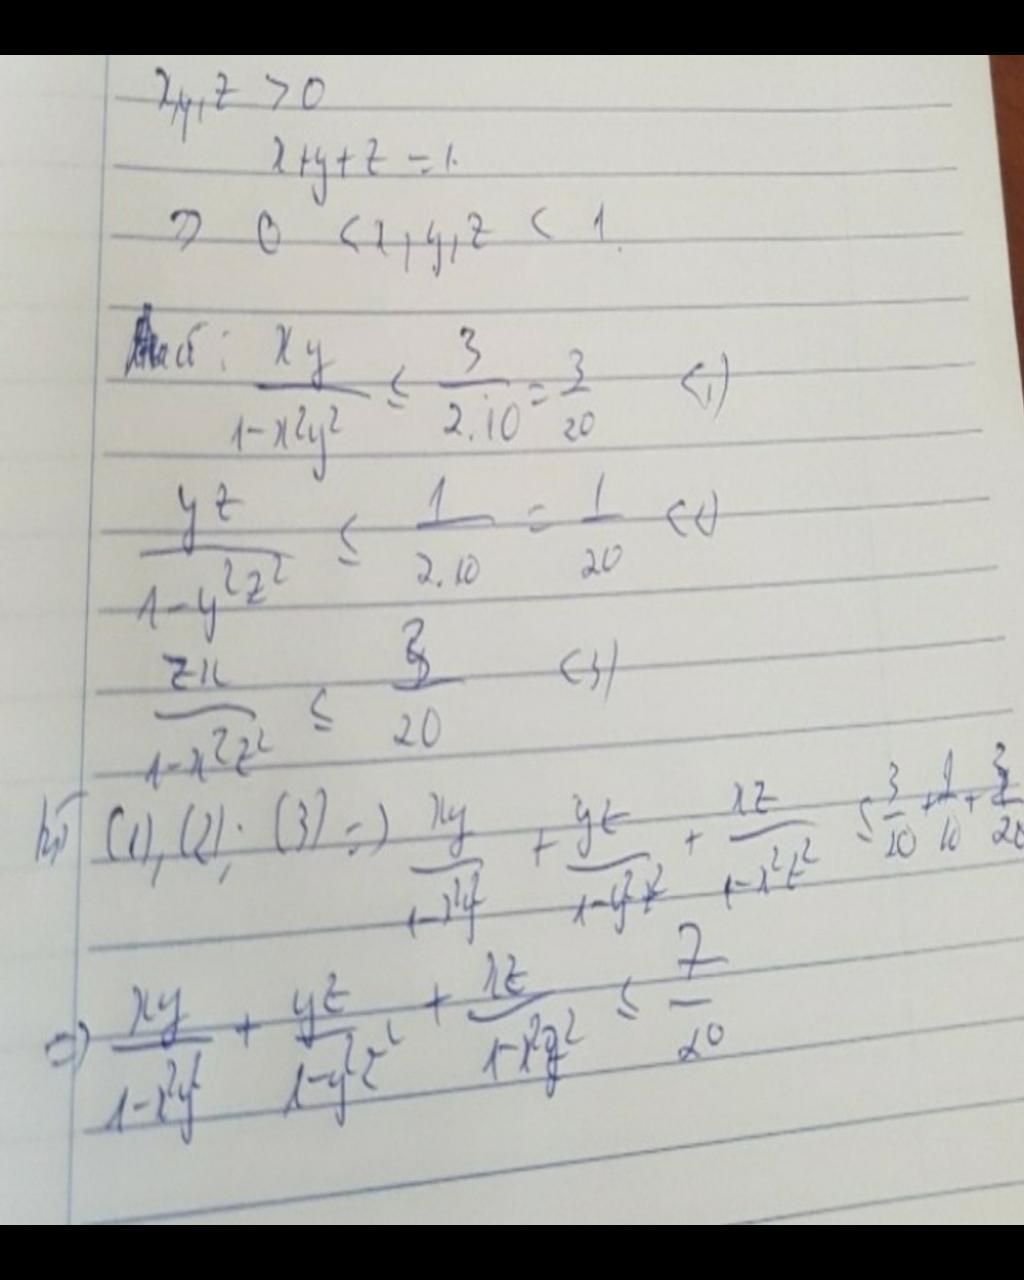 x,y,z > 0
x+y+z = 1.
=> 0 < x, y, z < 1.
xy/(1-x²y²) ≤ 3/2.10 = 3/20 (1)
yz/(1-y²z²) ≤ 1/2.10 = 1/20 (2)
zx/(1-x²z²) ≤ 3/20 (3)
(1), (2); (3) => xy/(1-x²y²) + yz/(1-y²z²) + xz/(1-x²z²) ≤ 3/20 + 1/10 + 3/20
=> xy/(1-x²y²) + yz/(1-y²z²) + xz/(1-x²z²) ≤ 7/20